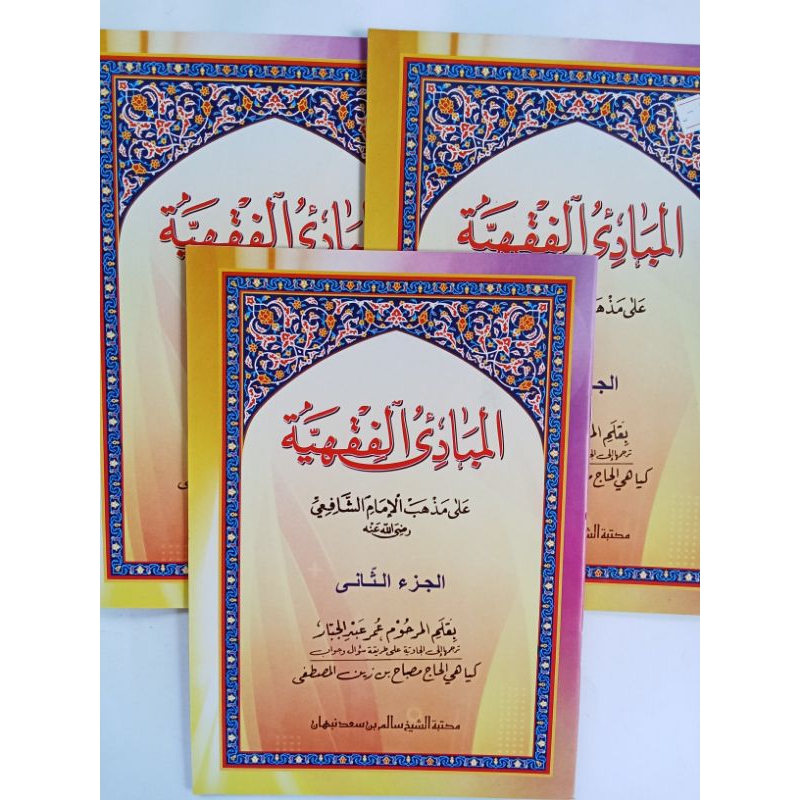 المبادئ الفقهية
على
بقلم
ترجمها إلى
كياهي الحاج
مكتبة
الفقهية
المبادئ الفقهية
على مذهب الإمام الشافعي
رضي الله عنه
الجزء الثانى
بقلم المرحوم عمر عبد الجبار
ترجمها إلى الجاوية على طريقة سؤال وجواب
كياهي الحاج مصباح بن زين المصطفى
مكتبة الشيخ سالم بن سعد نبهان